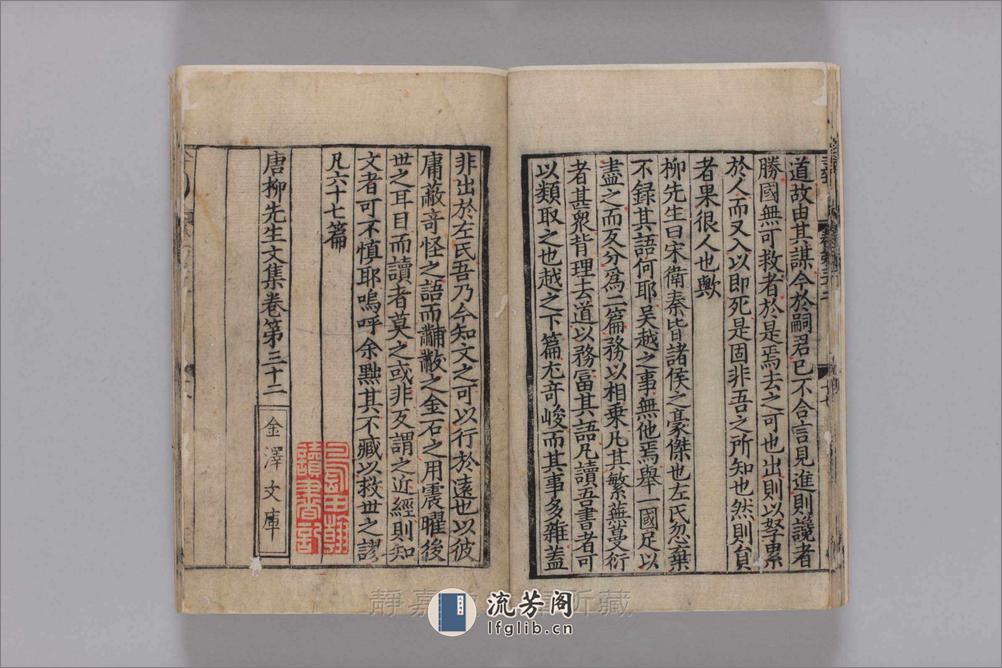 道故由其謀今於嗣君已不合言見進則讒者
勝國無可救者於是焉去之可也出則以孥累
於人而又入以即死是固非吾之所知也然則員
者果很人也歟
柳先生曰宋衛秦皆諸侯之豪傑也左氏忽棄
不録其語何耶吴越之事無他焉舉一國足以
盡之而反分爲二篇務以相乗凡其繁蕪蔓衍
者甚衆背理去道以務富其語凡讀吾書者可
以類取之也越之下篇尤竒峻而其事多雜蓋
非出於左氏吾乃今知文之可以行於遠也以彼
庸蔽竒怪之語而黼黻之金石之用震曜後
世之耳目而讀者莫之或非反謂之近經則知
文者可不慎耶嗚呼余黜其不臧以救世之謬
凡六十七篇
唐柳先生文集卷第三十二
金澤文庫
讀書記
靜嘉 所藏
流芳阁
lfglib.cn